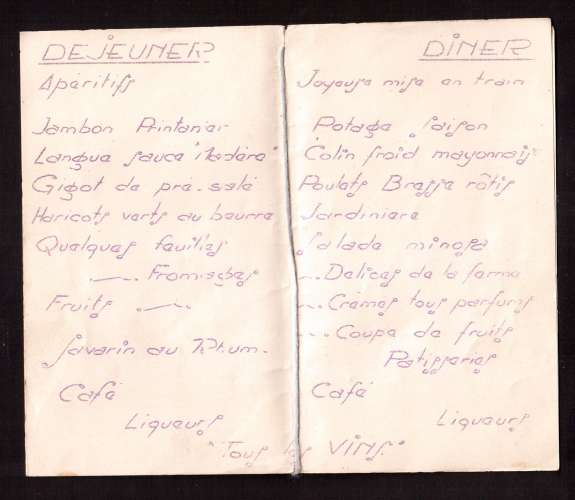 DEJEUNER
Apéritifs
Jambon Printanier
Langue sauce "Madère"
Gigot de pré-salé
Haricots verts au beurre
Quelques feuilles
Fromages
Fruits
Savarin au Rhum.
Café
Liqueurs
DÎNER
Joyeuse mise en train
Potage saison
Colin froid mayonnaise
Poulets Bresse rôtis
Jardiniere
Salade mimosa
Delices de la ferme
Crèmes tous parfums
Coupe de fruits
Patisseries
Café
Liqueurs
"Tous les VINS"